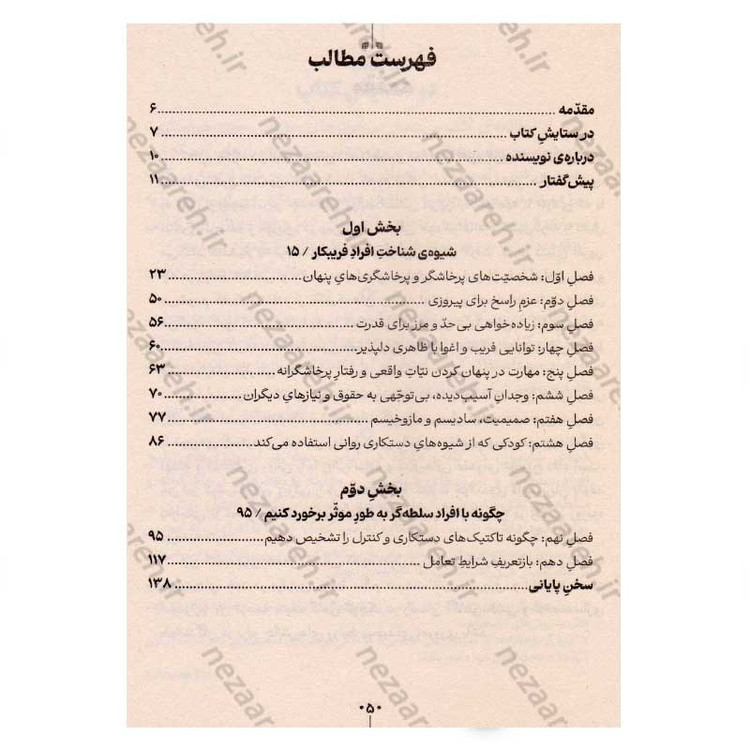 فهرست مطالب
مقدّمه ........ ۶
در ستایشِ کتاب ........ ۷
درباره‌ی نویسنده ........ ۱۰
پیش‌گفتار ........ ۱۱
بخش اول
شیوه‌ی شناختِ افرادِ فریبکار / ۱۵
فصلِ اوّل: شخصیّت‌های پرخاشگر و پرخاشگری‌هایِ پنهان ........ ۲۳
فصلِ دوّم: عزمِ راسخ برای پیروزی ........ ۵۰
فصلِ سوم: زیاده‌خواهی بی‌حدّ و مرز برای قدرت ........ ۵۶
فصلِ چهار: توانایی فریب و اغوا با ظاهری دلپذیر ........ ۶۰
فصلِ پنج: مهارت در پنهان کردن نیّاتِ واقعی و رفتارِ پرخاشگرانه ........ ۶۳
فصلِ ششم: وجدانِ آسیب‌دیده، بی‌توجّهی به حقوق و نیازهایِ دیگران ........ ۷۰
فصلِ هفتم: صمیمیت، سادیسم و مازوخیسم ........ ۷۷
فصلِ هشتم: کودکی که از شیوه‌هایِ دستکاری روانی استفاده می‌کند ........ ۸۶
بخشِ دوّم
چگونه با افراد سلطه‌گر به طورِ موثّر برخورد کنیم / ۹۵
فصلِ نهم: چگونه تاکتیک‌هایِ دستکاری و کنترل را تشخیص دهیم ........ ۹۵
فصلِ دهم: بازتعریفِ شرایطِ تعامل ........ ۱۱۷
سخنِ پایانی ........ ۱۳۸
۰۵۰
nezaareh.ir